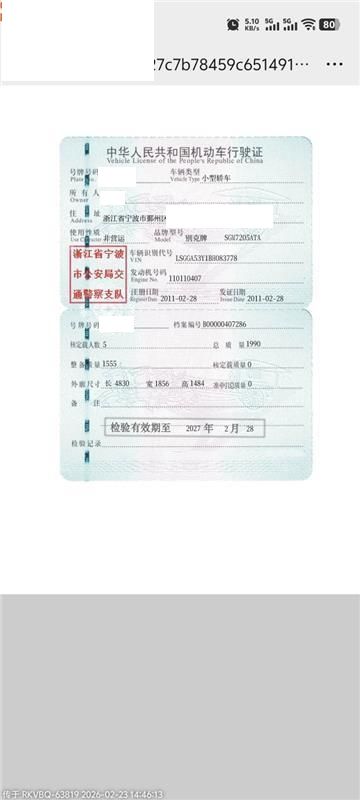 5.10 KB/s 5G 5G 80
27c7b78459c651491… ···
中华人民共和国机动车行驶证
Vehicle License of the People's Republic of China
号牌号码 车辆类型
Plate No. Vehicle Type 小型轿车
所有人
Owner
住址 浙江省宁波市鄞州区
Address
使用性质 非营运 品牌型号 别克牌 SGW7205ATA
Use Character Model
浙江省宁波市公安局交通警察支队
车辆识别代号 LSGGA53Y1BH083778
VIN
发动机号码 110110407
Engine No.
注册日期 2011-02-28 发证日期 2011-02-28
Register Date Issue Date
号牌号码 档案编号 B00000407286
核定载人数 5 总质量 1990
整备质量 1555 核定载质量 0
外廓尺寸 长 4830 宽 1856 高 1484 准牵引总质量 0
备注
检验有效期至 2027 年 2 月 28
检验记录
传于 RKVBQ-63819 2026-02-23 14:46:13